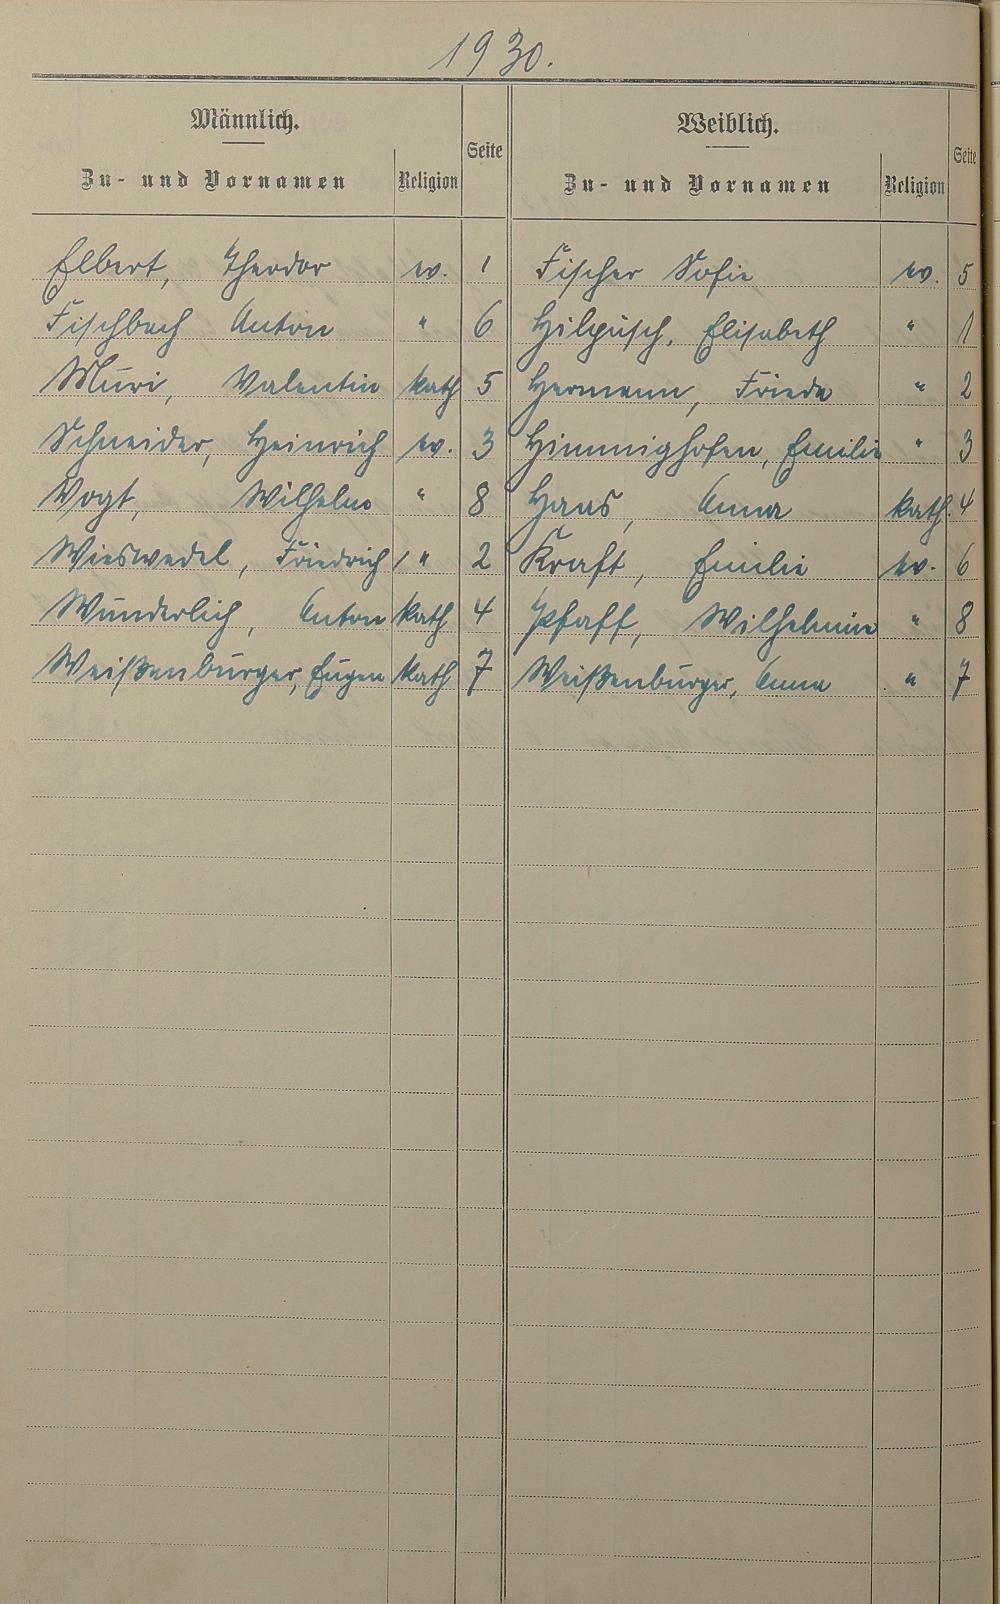 1930.
Männlich. Weiblich.
Zu- und Vornamen Religion Seite Zu- und Vornamen Religion Seite
Elbert, Theodor ev. 1 Fischer Sofie ev. 5
Fischbach Anton " 6 Hilpüsch, Elisabeth " 1
Muri, Valentin kath 5 Hermann, Frieda " 2
Schneider, Heinrich ev. 3 Himmighofen, Emilie " 3
Vogt, Wilhelm " 8 Haas, Anna kath. 4
Wieswedel, Friedrich, " 2 Kraft, Emilie ev. 6
Wunderlich, Anton kath 4 Pfaff, Wilhelmine " 8
Weißenburger, Eugen kath 7 Weißenburger, Anna " 7